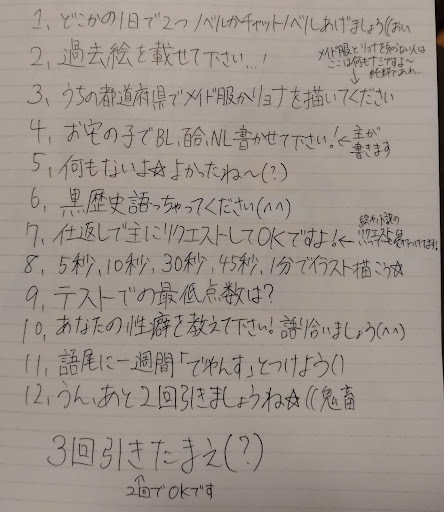 1、どこかの1日で2つノベルかチャットノベルしあげましょう((おい
2、過去絵を載せて下さい…!
メイド服とリョナを知らない人は
ここは何もナシですよ~
3、うちの都道府県でメイド服かリョナを描いてください
4、お宅の子でBL,百合,NL書かせて下さい!←主が
書きます
5、何もないよ☆よかったね~(?)
6、黒歴史語っちゃってください(^^)
7、仕返しで主にリクエストしてOKですよ!←
8、5秒,10秒,30秒,45秒,1分でイラスト描こう☆
9、テストでの最低点数は?
10、あなたの性癖を教えて下さい!語り合いましょう(^^)
11、語尾に一週間「でやんす」とつけよう()
12、うん、あと2回引きましょうね☆((鬼畜
3回引きたまえ(?)
2回でOKです